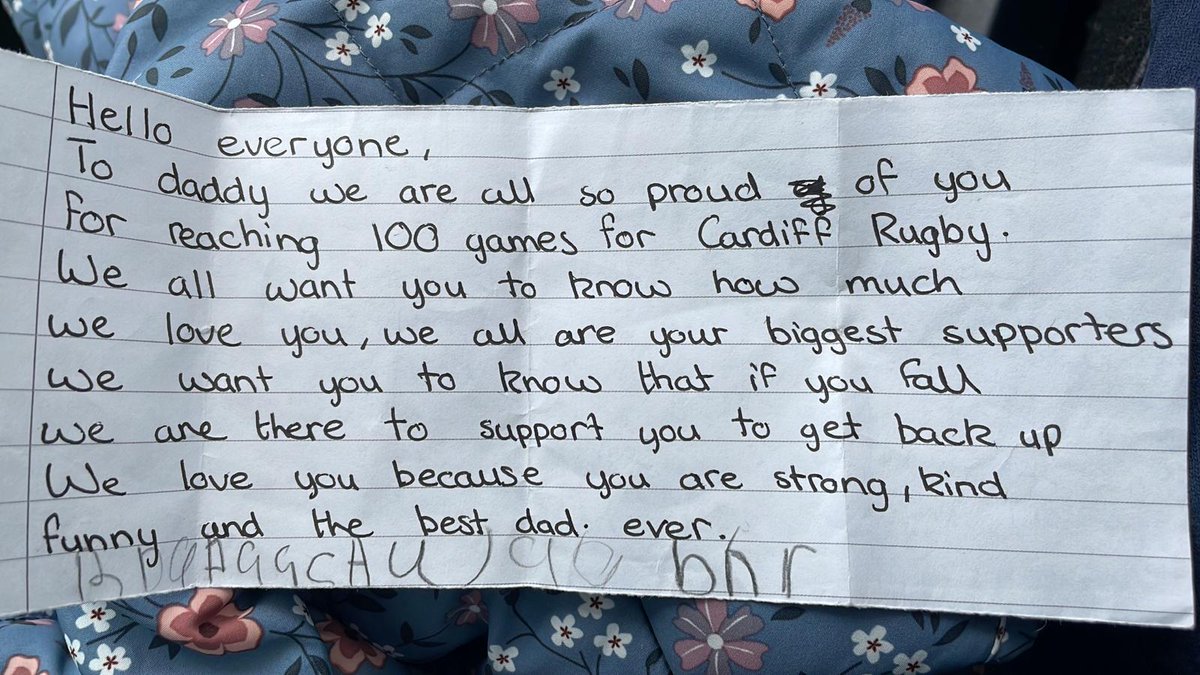 Hello everyone,
To daddy we are all so proud of you
for reaching 100 games for Cardiff Rugby.
We all want you to know how much
we love you, we all are your biggest supporters
we want you to know that if you fall
we are there to support you to get back up
We love you because you are strong, kind
funny and the best dad. ever.